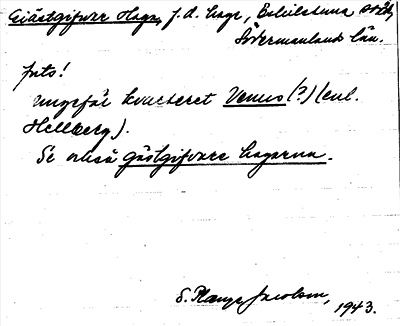 Gästgifvare Haga, f.d. hage, Eskilstuna stad,
Södermanlands län.
Into!
ungefär kvarteret Venus (?) (enl.
Hellberg).
Se också Gästgifvare hagarna.
S. Plange Jacobson,
1943.